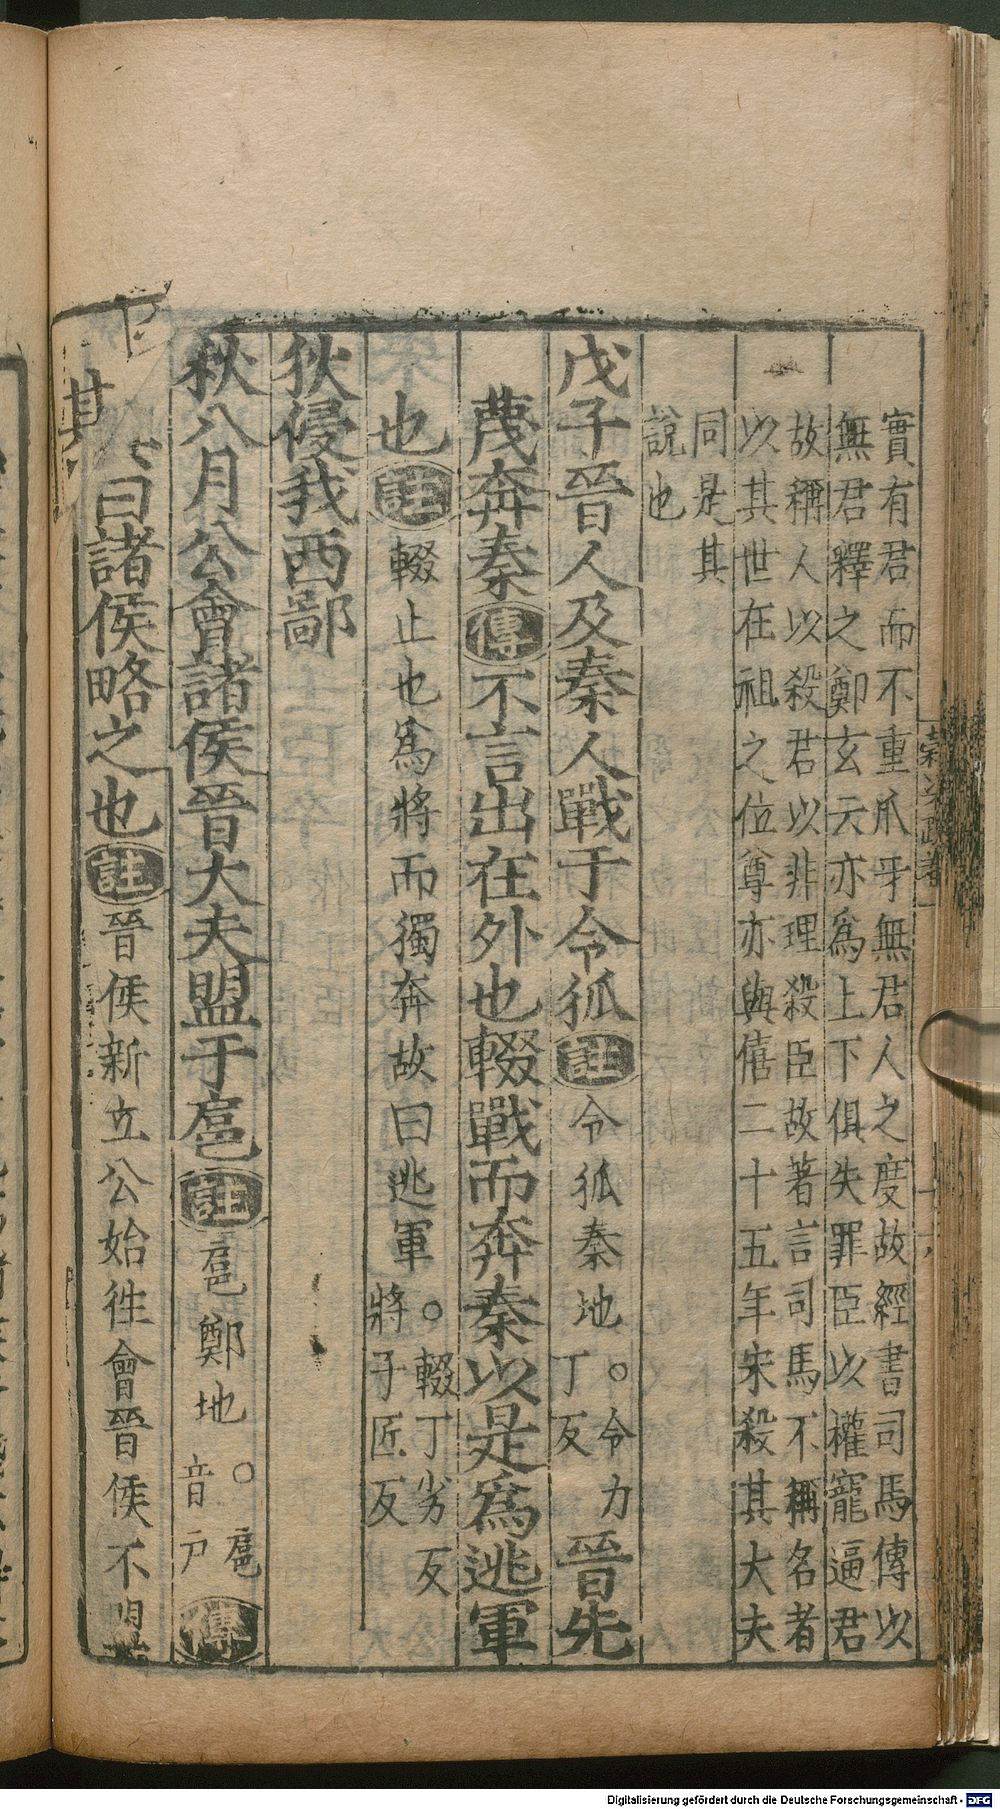 實有君而不重爪牙無君人之度故經書司馬傳以
無君釋之鄭玄云亦爲上下俱失罪臣以權寵逼君
故稱人以殺君以非理殺臣故著言司馬不稱名者
以其世在祖之位尊亦與僖二十五年宋殺其大夫
同是其
說也
戊子晉人及秦人戰于令狐註令狐秦地○令力丁反晉先
蔑奔秦傳不言出在外也輟戰而奔秦以是爲逃軍
也註輟止也爲將而獨奔故曰逃軍○輟丁劣反將子匠反
狄侵我西鄙
秋八月公會諸侯晉大夫盟于扈註扈鄭地○扈音戶傳
其曰諸侯略之也註晉侯新立公始往會晉侯不盟
Digitalisierung gefördert durch die Deutsche Forschungsgemeinschaft - DFG